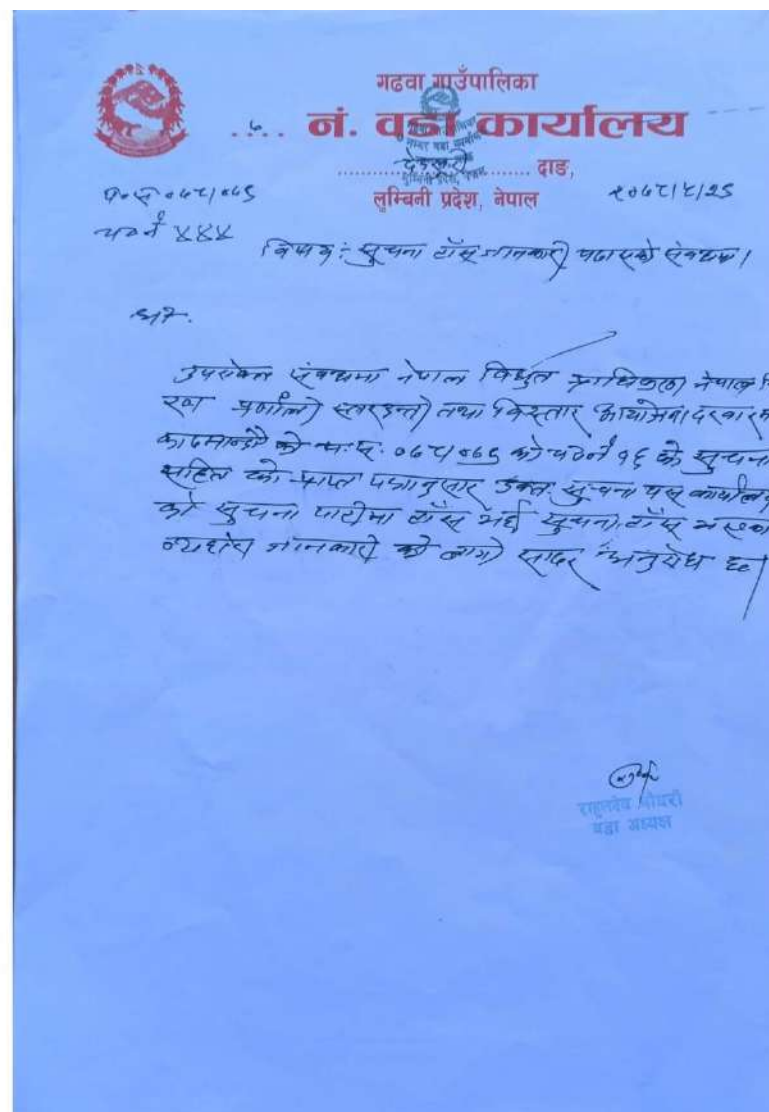 गढवा गाउँपालिका
७ नं. वडा कार्यालय
देउखुरी दाङ,
लुम्बिनी प्रदेश, नेपाल
प.सं. ०७८/०७९
२०७८/८/२९
च.नं. ४४४
विषय: सूचना टाँस जानकारी पठाएको संबन्धमा।
श्री
उपरोक्त संबन्धमा नेपाल विद्युत प्राधिकरण नेपाल वि
रण प्रणाली स्तरउन्नती तथा विस्तार आयोजना दरवारम
काठमाण्डौ को प.सं. ०७८/०७९ को च.नं १६ को सुचना
सहित को प्राप्त पत्रानुसार उक्त सुचना यस कार्यालय
को सुचना पाटीमा टाँस भई सुचना टाँस भएको
व्यहोरा जानकारी को लागी सादर अनुरोध छ।
वडा अध्यक्ष